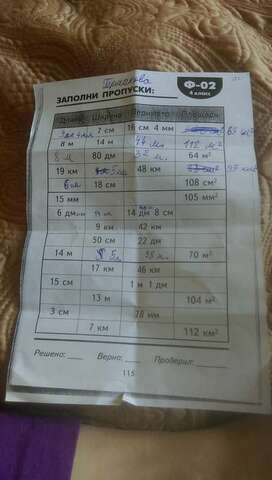 Ф-02
4 КЛАСС
ЗАПОЛНИ ПРОПУСКИ:
Длина Ширина Периметр Площадь
7 см 16 см 4 мм
8 м 14 м 112 м²
8 м 80 дм 32 м 64 м²
19 км 5 км 48 км 95 км²
6 см 18 см 108 см²
15 мм 105 мм²
6 дм 14 дм 8 см
9 км 42 км
50 см 22 дм
14 м 5 м 70 м²
17 км 46 км
15 см 1 м 1 дм
13 м 104 м²
3 см 78 мм
7 км 112 км²
Решено: Верно: Проверил:
115